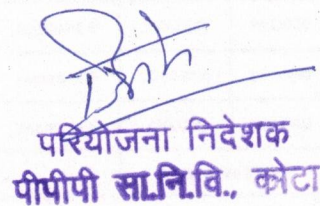 परियोजना निदेशक
पीपीपी सा.नि.वि., कोटा